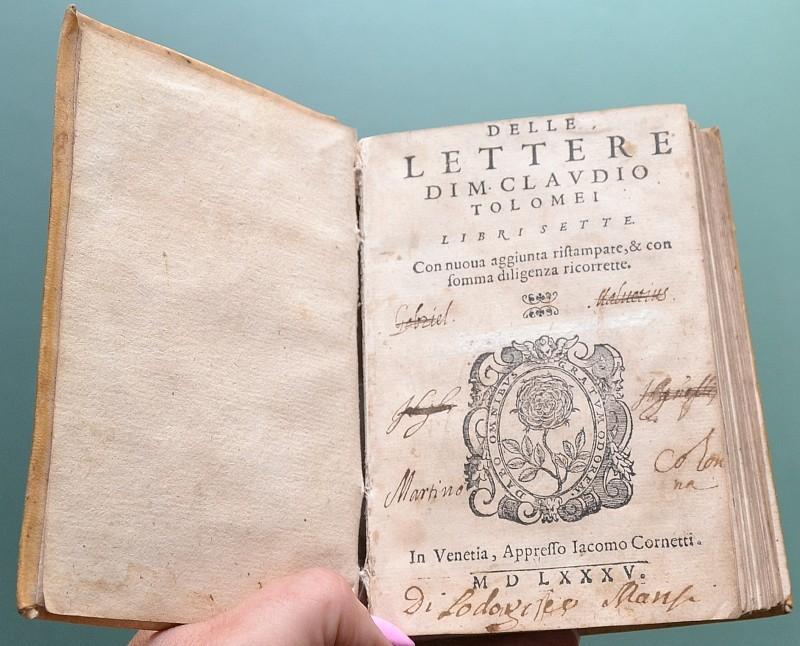 DELLE
LETTERE
DI M. CLAVDIO
TOLOMEI
LIBRI SETTE.
Con nuoua aggiunta ristampate, & con
somma diligenza ricorrette.
Gabriel.
DABO OMNIBVS GRATVM ODOREM.
Martino
Colon
na
In Venetia, Appresso Iacomo Cornetti.
M D LXXXV.
Di